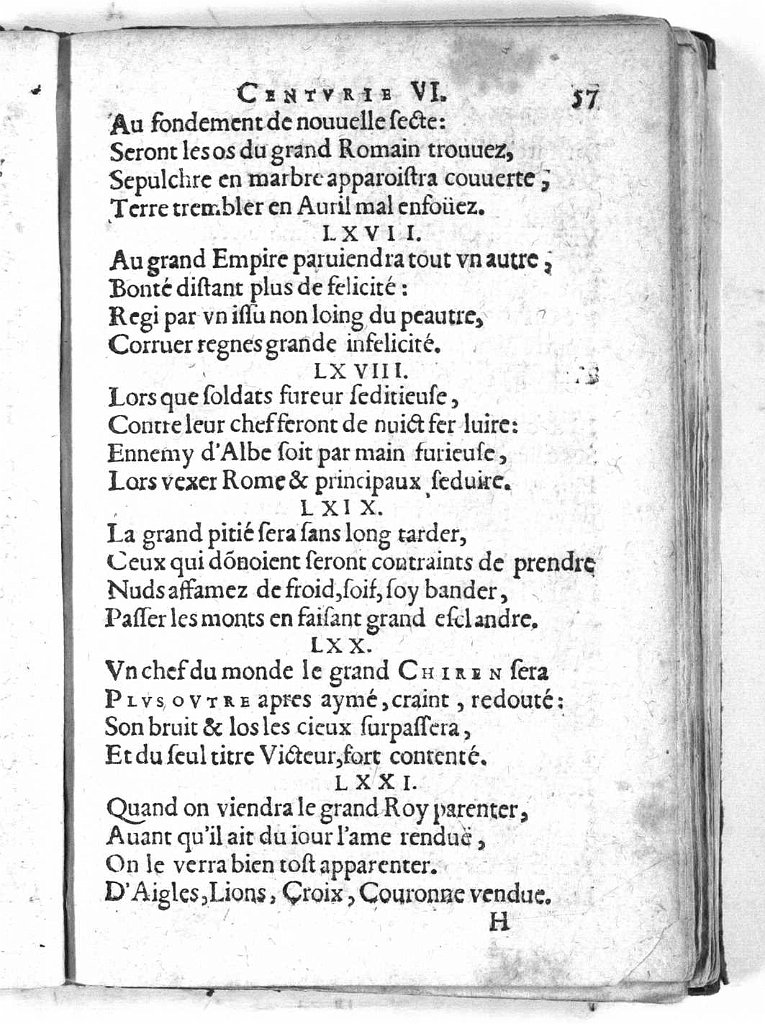 CENTVRIE VI. 57
Au fondement de nouuelle ſecte:
Seront les os du grand Romain trouuez,
Sepulchre en marbre apparoiſtra couuerte,
Terre trembler en Auril mal enfoüez.
LXVII.
Au grand Empire paruiendra tout vn autre,
Bonté diſtant plus de felicité:
Regi par vn iſſu non loing du peautre,
Corruer regnes grande infelicité.
LXVIII.
Lors que ſoldats fureur ſeditieuſe,
Contre leur chef feront de nuict fer luire:
Ennemy d'Albe ſoit par main furieuſe,
Lors vexer Rome & principaux ſeduire.
LXIX.
La grand pitié ſera ſans long tarder,
Ceux qui dõnoient ſeront contraints de prendre
Nuds affamez de froid, ſoif, ſoy bander,
Paſſer les monts en faiſant grand eſclandre.
LXX.
Vn chef du monde le grand CHIREN ſera
PLVS OVTRE apres aymé, craint, redouté:
Son bruit & los les cieux ſurpaſſera,
Et du ſeul titre Victeur, fort contenté.
LXXI.
Quand on viendra le grand Roy parenter,
Auant qu'il ait du iour l'ame renduë,
On le verra bien toſt apparenter.
D'Aigles, Lions, Croix, Couronne vendue.
H